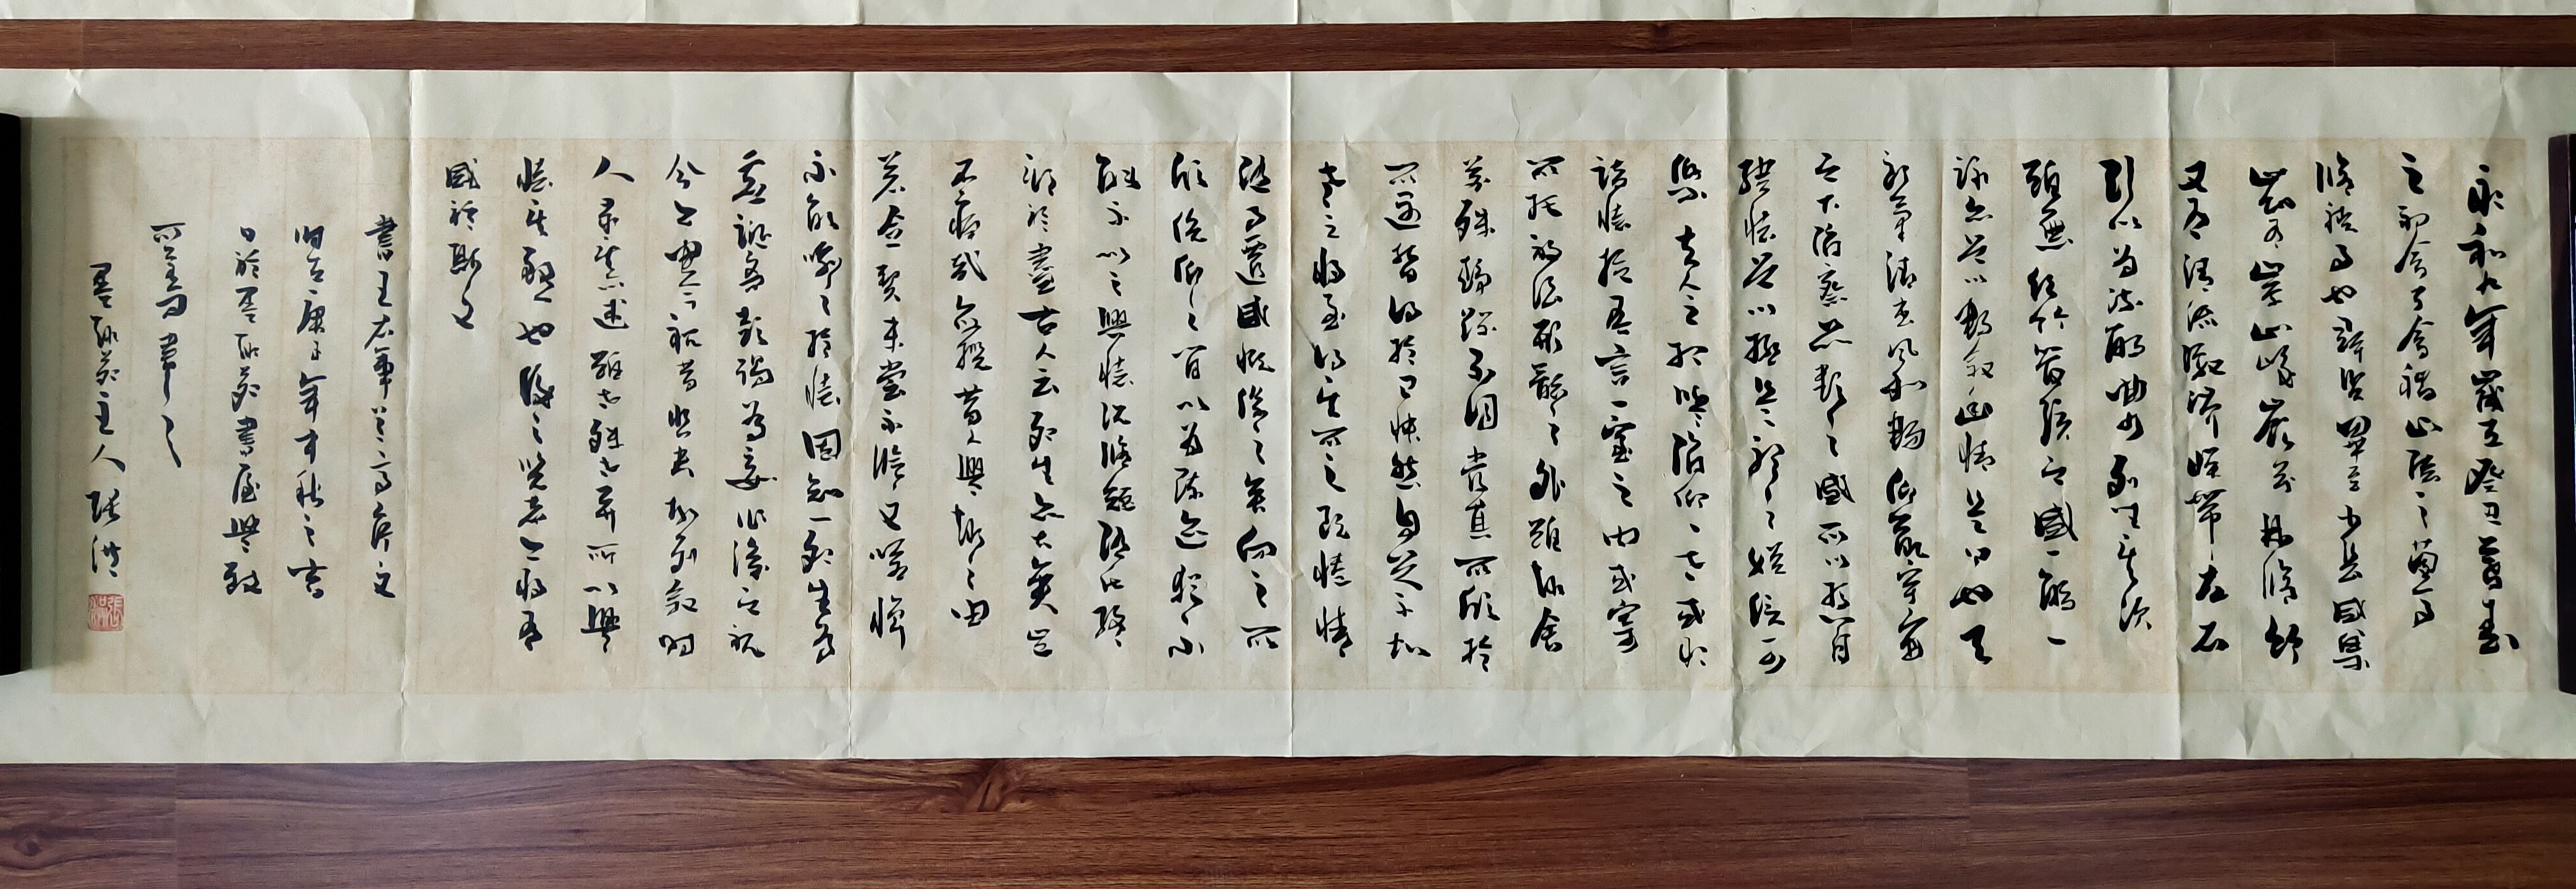 永和九年歲在癸丑暮春
之初會于會稽山陰之蘭亭
脩禊事也群賢畢至少長咸集
此地有崇山峻嶺茂林脩竹
又有清流激湍映帶左右
引以為流觴曲水列坐其次
雖無絲竹管弦之盛一觴一
詠亦足以暢敘幽情是日也天
朗氣清惠風和暢仰觀宇宙
之大俯察品類之盛所以游目
騁懷足以極視聽之娛信可
樂夫人之相與俯仰一世或取
諸懷抱悟言一室之內或寄
所託放浪形骸之外雖取舍
萬殊靜躁不同當其所欣於
所遇暫得於己快然自足不知
老之將至及其所之既惓情
隨事遷感慨係之矣向之所
欣俛仰之間以為陳迹猶不
能不以之興懷況脩短隨化終
期於盡古人云死生亦大矣豈
不痛哉每攬昔人興感之由
若合一契未嘗不臨文嗟悼
不能喻之於懷固知一死生為
虛誕齊彭殤為妄作後之視
今亦由今之視昔悲夫故列敘時
人錄其所述雖世殊事異所以興
懷其致一也後之覽者亦將有
感於斯文
書王右軍蘭亭序文
時在庚子年中秋之吉
日於墨耘苑書屋興致
所至而書之
墨耘苑主人張洪